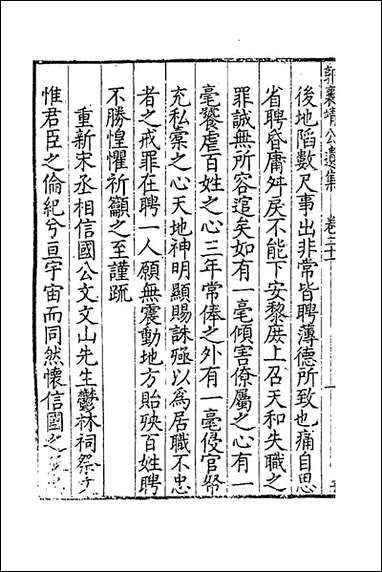 郭襄靖公遺集 卷二十
後地陷數尺事出非常皆聘薄德所致也痛自思
省聘昏庸舛戾不能下安黎庶上召天和失職之
罪誠無所容逭矣如有一毫傾害僚屬之心有一
毫饕虐百姓之心三年常俸之外有一毫侵官幣
充私橐之心天地神明顯賜誅殛以為居職不忠
者之戒罪在聘一人願無震動地方貽殃百姓聘
不勝惶懼祈籲之至謹疏
重新宋丞相信國公文文山先生鬱林祠祭文
惟君臣之倫紀兮亘宇宙而同然懷信國之